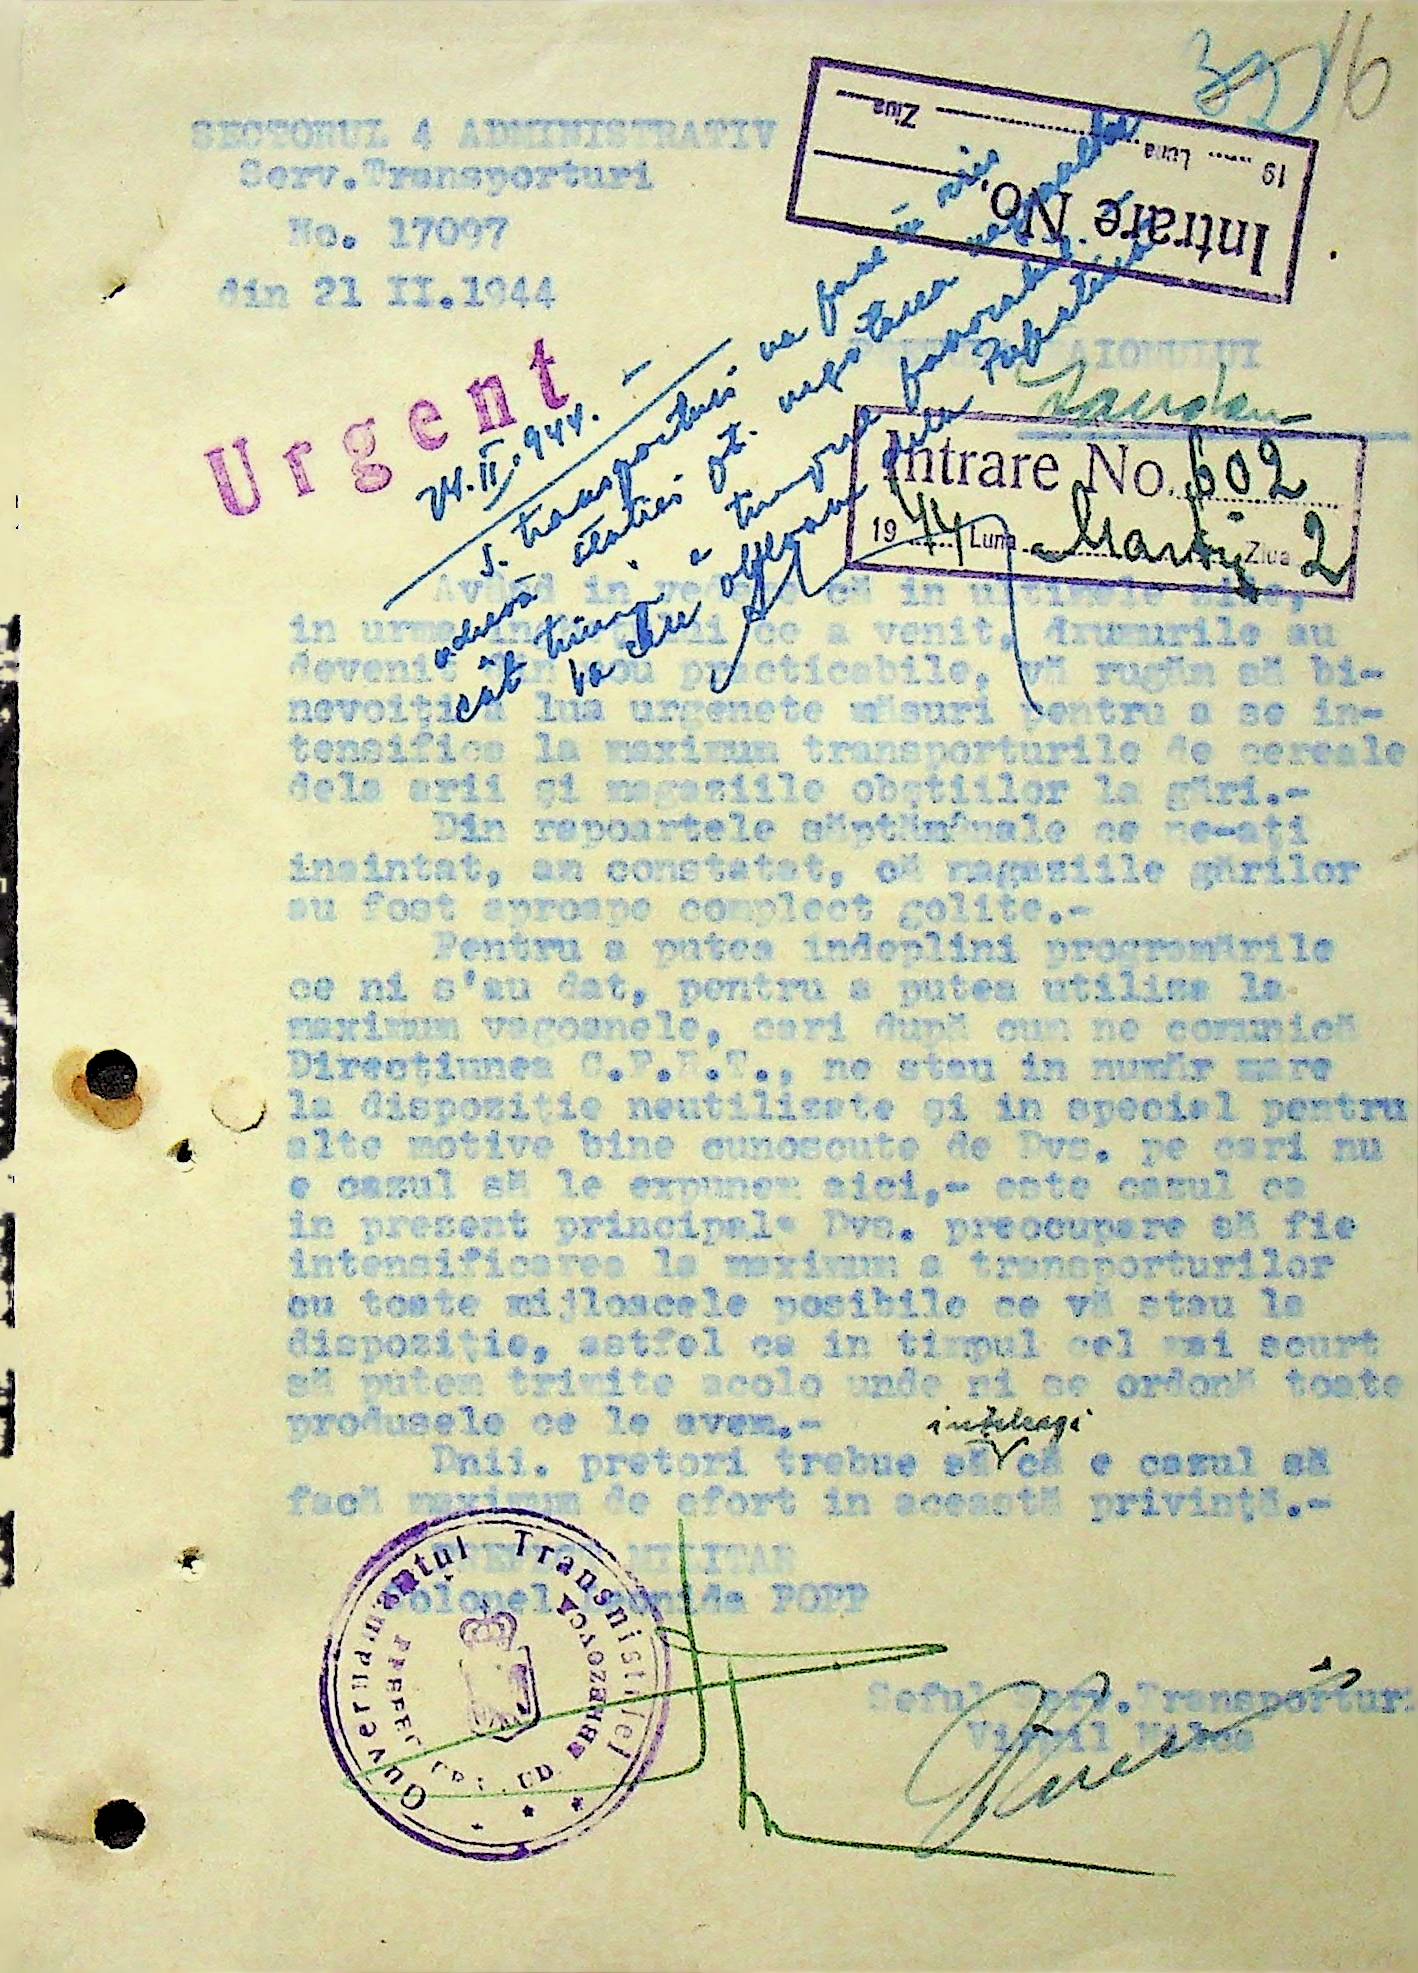 16
SECTORUL 4 ADMINISTRATIV
Serv.Transporturi
No. 17097
din 21 II.1944
Intrare No.
19 Luna Ziua
Urgent
24.II.944.
S. transporturi va face
adresă
cât timp
RAIONULUI
Landau
Intrare No. 602
1944 Luna Martie Ziua 2
Având in vedere că in ultimele zile,
in urma ce a venit, drumurile au
devenit din nou practicabile, vă rugăm să bi-
nevoiți a lua urgenete măsuri pentru a se in-
tensifica la maximum transporturile de cereale
dela arii și magaziile obștiilor la gări.-
Din rapoartele săptămânale ce ne-ați
inaintat, am constatat, că magaziile gărilor
au fost aproape complect golite.-
Pentru a putea indeplini programările
ce ni s'au dat, pentru a putea utiliza la
maximum vagoanele, cari după cum ne comunică
Direcțiunea C.F.R.T., ne stau in număr mare
la dispoziție neutilizate și in special pentru
alte motive bine cunoscute de Dvs. pe cari nu
e cazul să le expunem aici,- este cazul ca
in prezent principala Dvs. preocupare să fie
intensificarea la maximum a transporturilor
cu toate mijloacele posibile ce vă stau la
dispoziție, astfel ca in timpul cel mai scurt
să putem trimite acolo unde ni se ordonă toate
produsele ce le avem.-
Dnii. pretori trebue să înțeleagi că e cazul să
facă maximum de efort in această privință.-
PREFECT MILITAR
Colonel Leonida POPP
Guvernământul Transnistriei
PREFECT JUD. BEREZOVCA
Seful Serv.Transporturi
Virgil